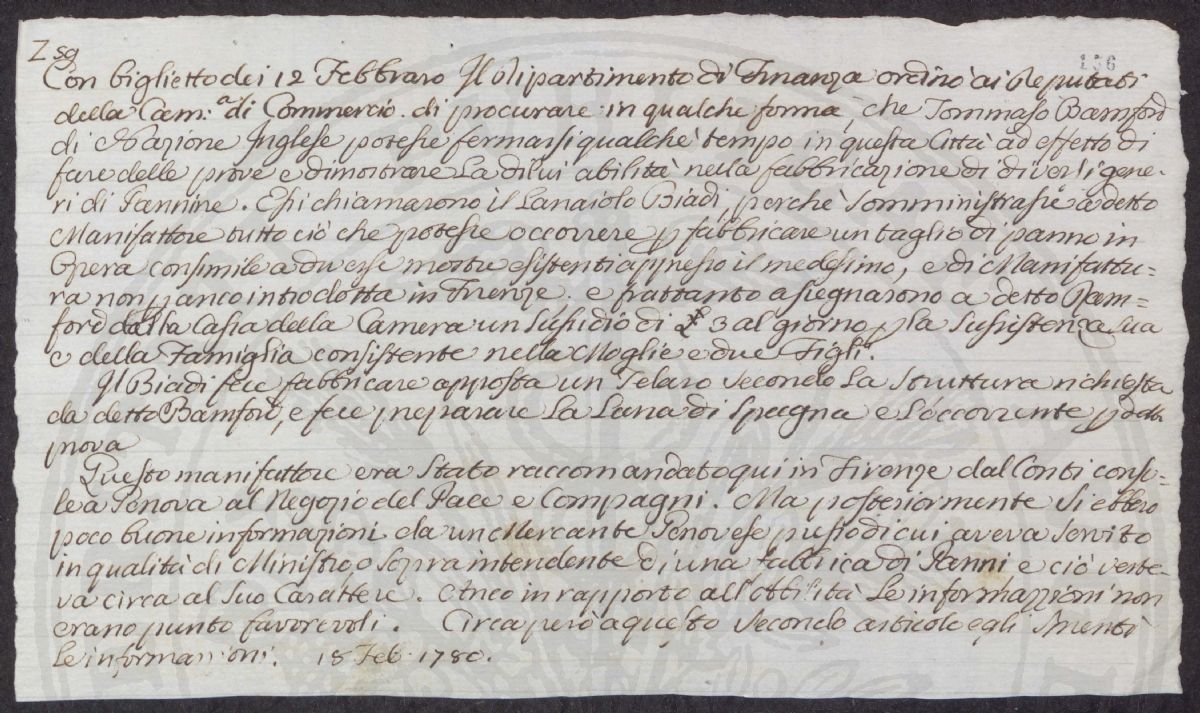 Z sg
136
Con biglietto dei 12 Febbraro Il Dipartimento di Finanza ordinò ai Deputati
della Cam:ª di Commercio. di procurare in qualche forma, che Tommaso Bamford
di Nazione Inglese potesse fermarsi qualche tempo in questa Città ad effetto di
fare delle prove e dimostrare La di lui abilità nella fabbricazione di diversi gene-
ri di Pannine. Essi chiamarono il Lanaiolo Biadi, perchè somministrasse a detto
Manifattore tutto ciò che potesse occorrere p fabbricare un taglio di panno in
Opera consimile a diverse mostre esistenti appresso il medesimo, e di Manifattu-
ra non p anco introdotta in Firenze. e frattanto assegnarono a detto Bam-
ford dalla Cassa della Camera un sussidio di £ 3 al giorno p la sussistenza sua
e della Famiglia consistente nella Moglie e due Figli.
Il Biadi fece fabbricare apposta un Telaro secondo La struttura richiesta
da detto Bamford, e fece preparare La Lana di Spagna e L'occorrente p detta
prova
Questo manifattore era stato raccomandato qui in Firenze dal Conti conso-
le a Genova al Negozio del Pace e Compagni. Ma posteriormente si ebbero
poco buone informazioni da un Mercante Genovese presso di cui aveva servito
in qualità di Ministro o sopra intendente di una fabbrica di Panni e ciò verte-
va circa al suo Carattere. Anco in rapporto all'Abilità Le informazzioni non
erano punto favorevoli. Circa però a questo secondo articolo egli smentì
Le informazioni. 18 Feb. 1780.